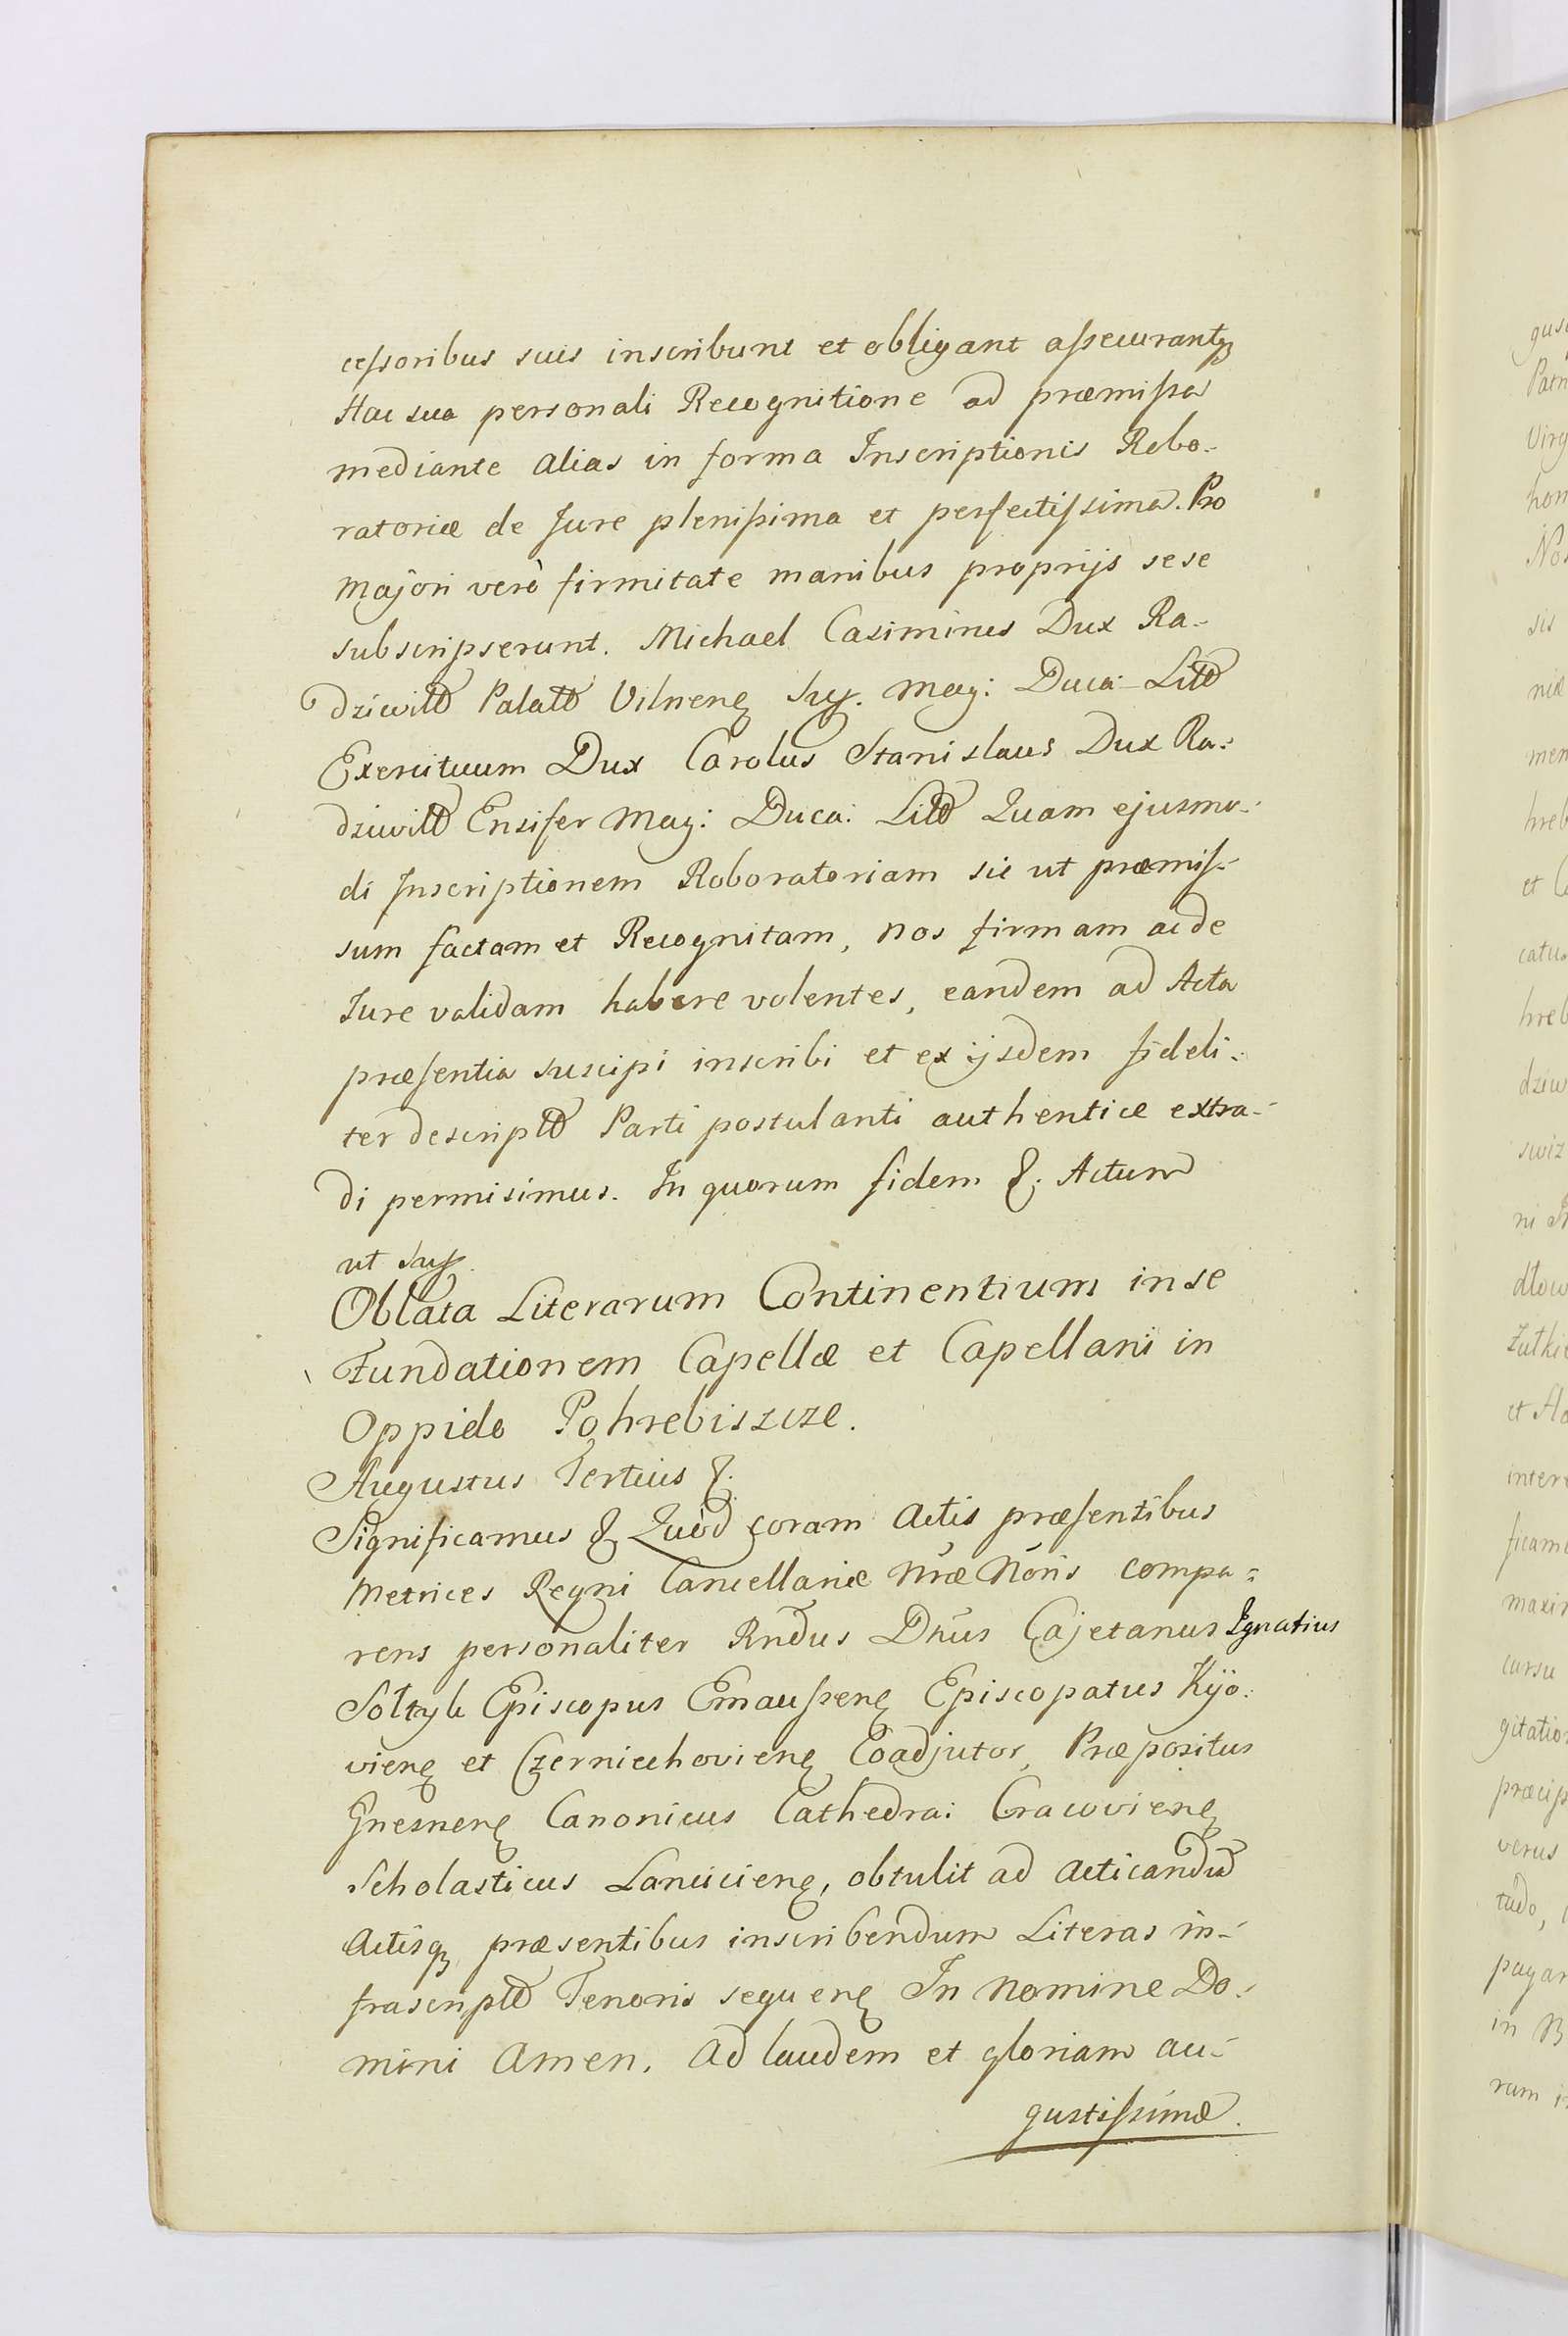 cessoribus suis inscribunt et obligant assecurantq
Hac sua personali Recognitione ad præmissa
mediante alias in forma Inscriptionis Robo-
ratoriæ de Jure plenissima et perfectissima. Pro
Majori verò firmitate manibus proprijs sese
subscripserunt. Michael Casimirus Dux Ra-
dziwiłł Palatt Vilnenę Sup. Mag: Duca: Litt
Exercituum Dux Carolus Stanislaus Dux Ra-
dziwiłł Ensifer Mag: Duca: Litt Quam ejusmo-
di Inscriptionem Roboratoriam sic ut præmis-
sum factam et Recognitam, nos firmam ac de
Jure validam habere volentes, eandem ad Acta
præsentia suscipi inscribi et ex ijsdem fideli-
ter descriptt Parti postulanti authentice extra-
di permisimus. In quorum fidem &. Actum
ut sup.
Oblata Literarum Continentium in se
Fundationem Capellæ et Capellani in
Oppido Pohrebiszcze.
Augustus Tertius &.
Significamus & Quòd coram Actis præsentibus
Metrices Regni Cancellariæ Nræ Moris compa-
rens personaliter Rndus Dnus Cajetanus Ignatius
Sołtyk Episcopus Emaussenę Episcopatus Kijo-
vienę et Czerniechovienę Coadjutor, Præpositus
Gnesnenę Canonicus Cathedra: Cracovienę
Scholasticus Lancicienę, obtulit ad acticandum
Actisq præsentibus inscribendum Literas in-
frascriptt Tenoris sequenę In Nomine Do-
mini Amen. Ad laudem et gloriam au-
gustissimæ.